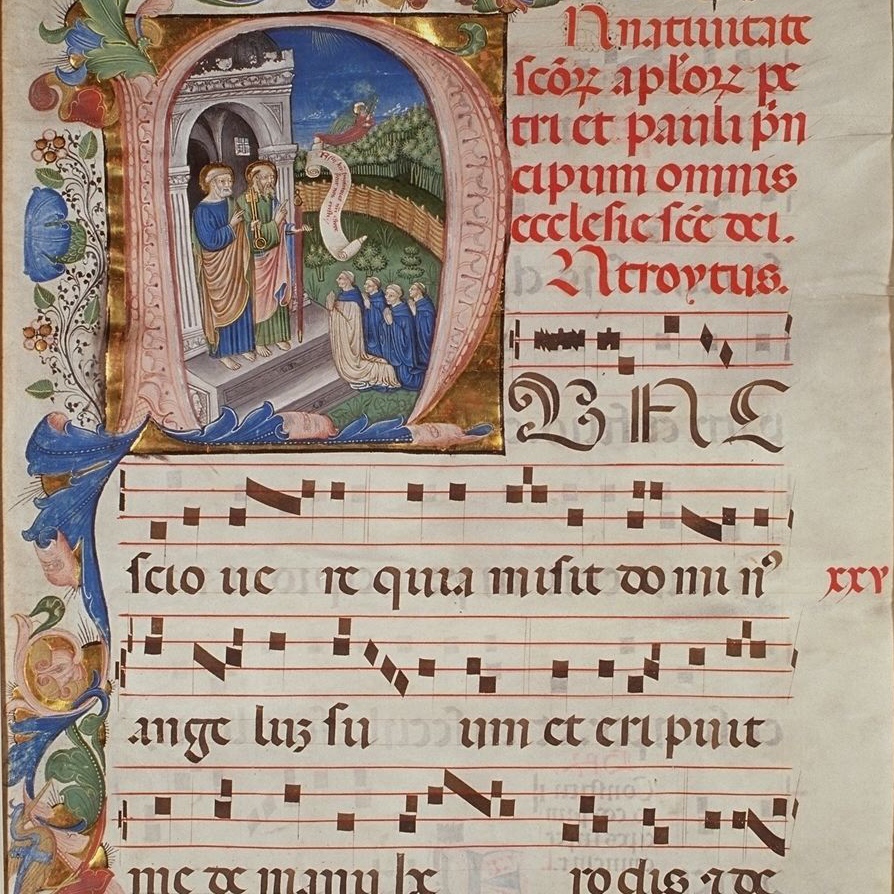 In natiuitate
scõꝝ aplõꝝ pe
tri et pauli p̃n
cipum omnis
ecclesie sc̃e dei.
Introytus.
Nunc
scio ue re quia misit do mi nꝰ
xxv
ange luȝ su um et eripuit
me de manu he ro dis ⁊ de